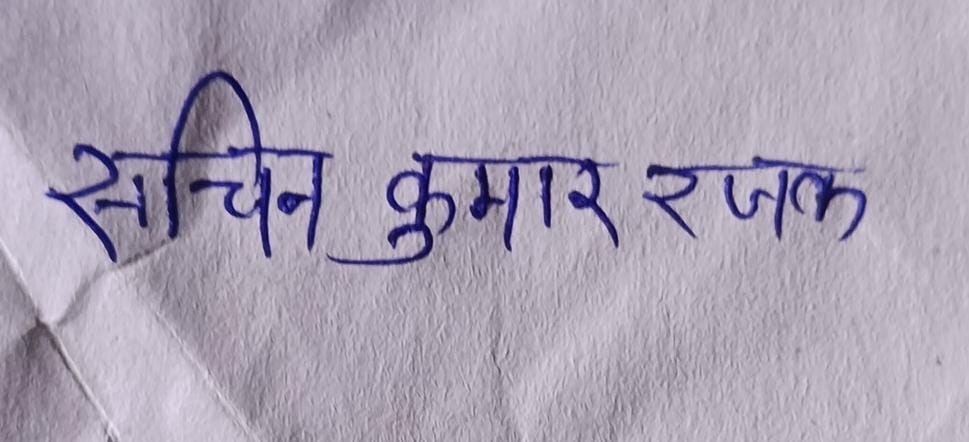 सचिन कुमार रजक